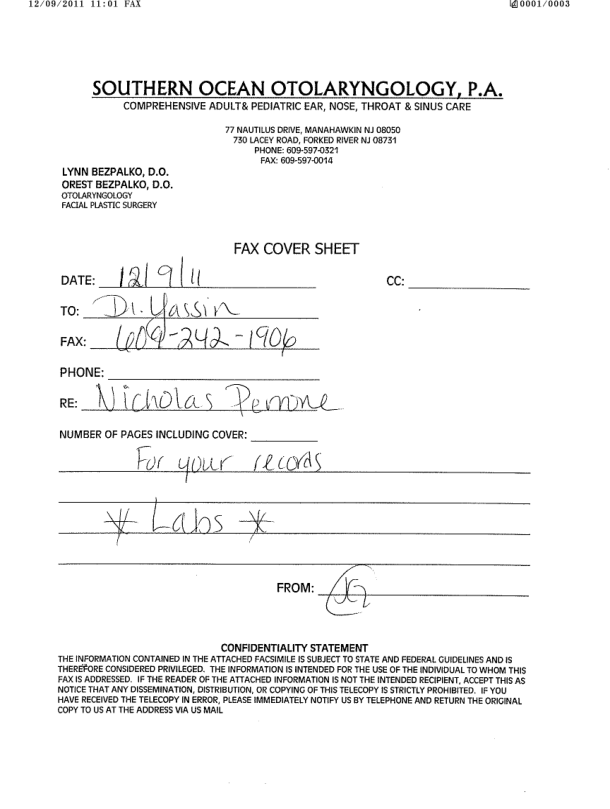 12/09/2011 11:01 FAX 0001/0003
SOUTHERN OCEAN OTOLARYNGOLOGY, P.A.
COMPREHENSIVE ADULT& PEDIATRIC EAR, NOSE, THROAT & SINUS CARE
77 NAUTILUS DRIVE, MANAHAWKIN NJ 08050
730 LACEY ROAD, FORKED RIVER NJ 08731
PHONE: 609-597-0321
FAX: 609-597-0014
LYNN BEZPALKO, D.O.
OREST BEZPALKO, D.O.
OTOLARYNGOLOGY
FACIAL PLASTIC SURGERY
FAX COVER SHEET
DATE: 12/9/11 CC:
TO: Dr. Yassin
FAX: 609-242-1906
PHONE:
RE: Nicholas Perrone
NUMBER OF PAGES INCLUDING COVER:
For your records
* Labs *
FROM:
CONFIDENTIALITY STATEMENT
THE INFORMATION CONTAINED IN THE ATTACHED FACSIMILE IS SUBJECT TO STATE AND FEDERAL GUIDELINES AND IS
THEREFORE CONSIDERED PRIVILEGED. THE INFORMATION IS INTENDED FOR THE USE OF THE INDIVIDUAL TO WHOM THIS
FAX IS ADDRESSED. IF THE READER OF THE ATTACHED INFORMATION IS NOT THE INTENDED RECIPIENT, ACCEPT THIS AS
NOTICE THAT ANY DISSEMINATION, DISTRIBUTION, OR COPYING OF THIS TELECOPY IS STRICTLY PROHIBITED. IF YOU
HAVE RECEIVED THE TELECOPY IN ERROR, PLEASE IMMEDIATELY NOTIFY US BY TELEPHONE AND RETURN THE ORIGINAL
COPY TO US AT THE ADDRESS VIA US MAIL